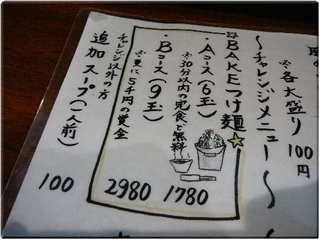 ※各大盛り100円
～チャレンジメニュー～
☆BAKEつけ麺☆
・Aコース(6玉) 1780
※30分以内の完食で無料
・Bコース(9玉) 2980
※更に5千円の賞金
チャレンジ以外の方
追加スープ(一人前) 100